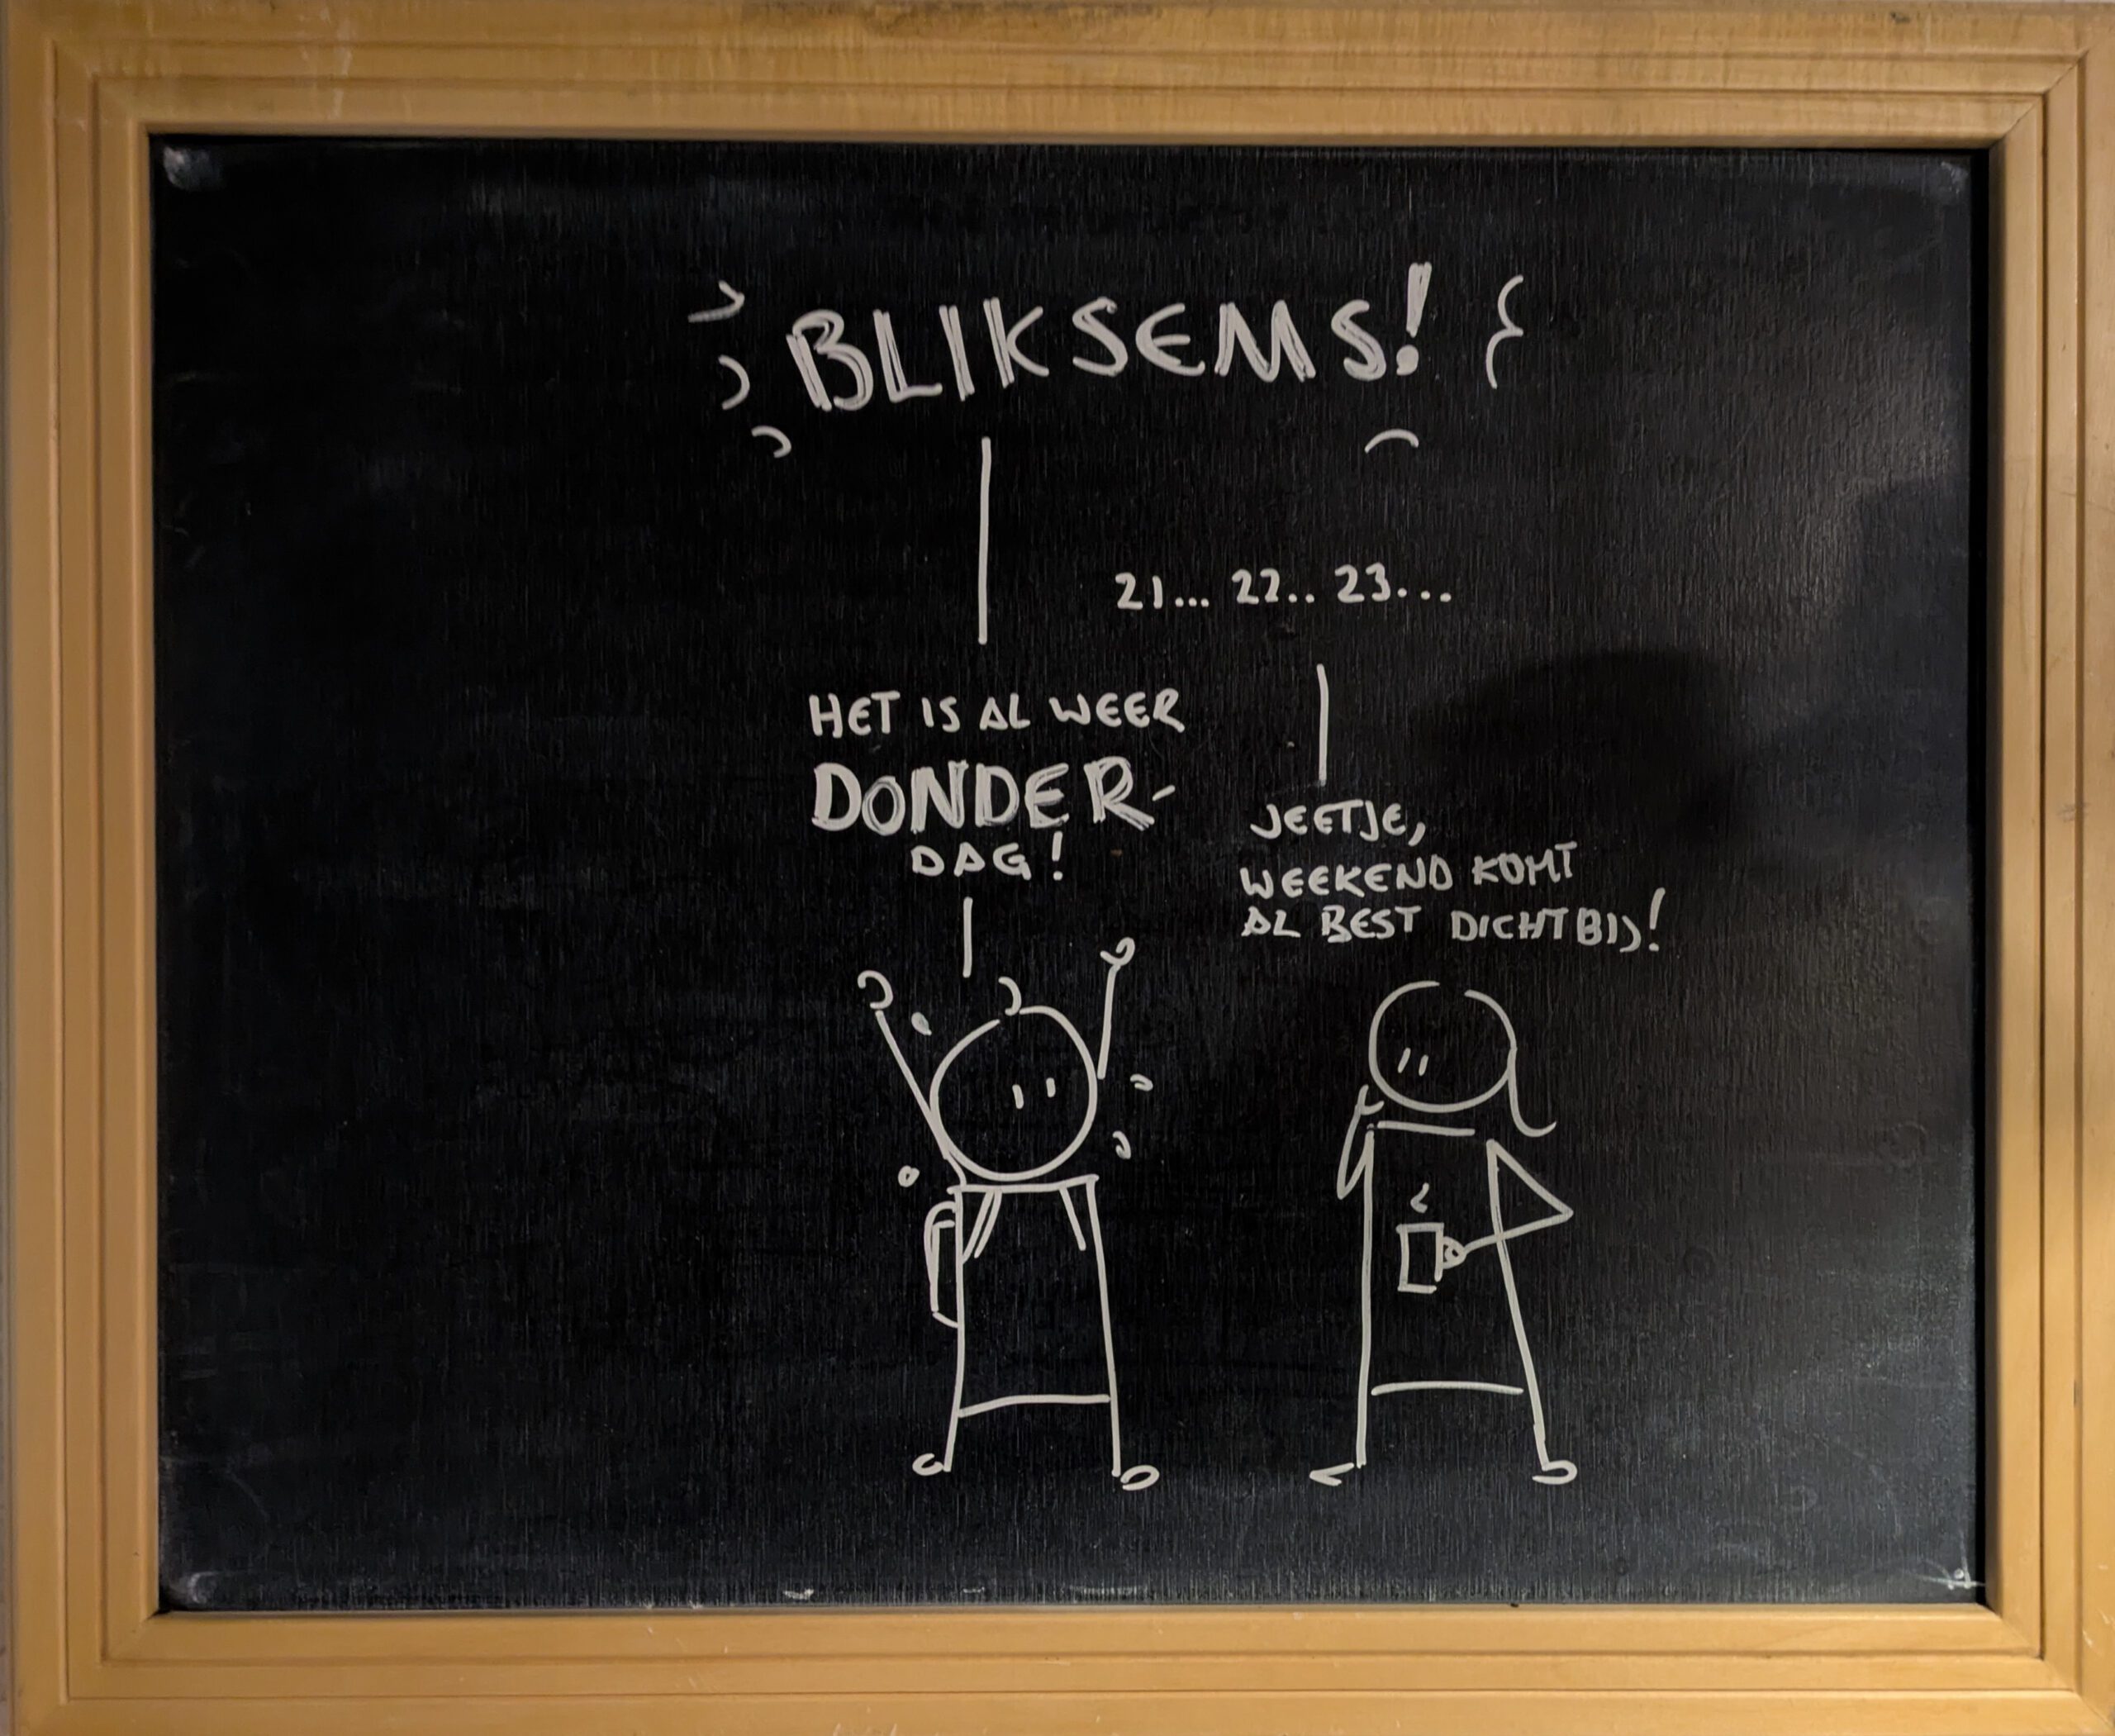 BLIKSEMS!
21... 22.. 23...
HET IS AL WEER
DONDER-
DAG!
JEETJE,
WEEKEND KOMT
AL BEST DICHTBIJ!